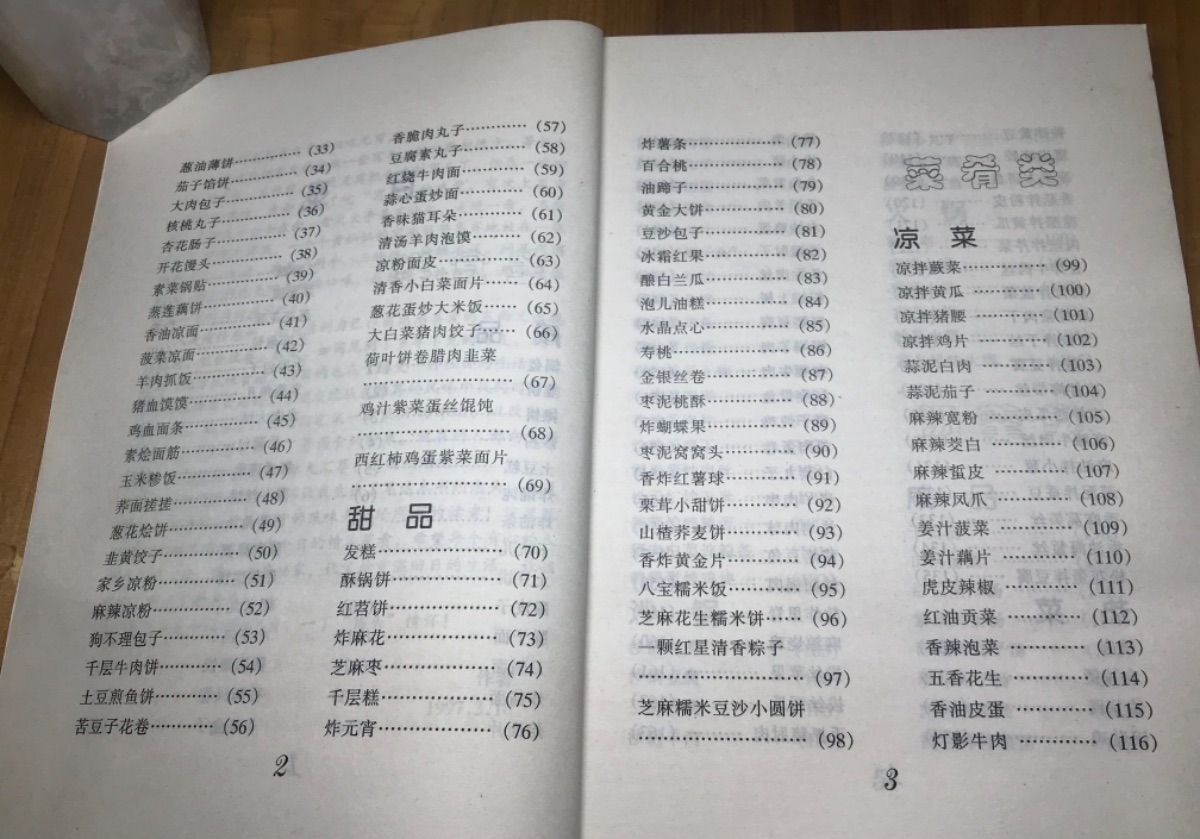 葱油薄饼……………(33)
茄子馅饼……………(34)
大肉包子……………(35)
核桃丸子……………(36)
杏花肠子……………(37)
开花馒头……………(38)
素菜锅贴……………(39)
蒸莲藕饼……………(40)
香油凉面……………(41)
菠菜凉面……………(42)
羊肉抓饭……………(43)
猪血馍馍……………(44)
鸡血面条……………(45)
素烩面筋……………(46)
玉米糁饭……………(47)
荞面搓搓……………(48)
葱花烩饼……………(49)
韭黄饺子……………(50)
家乡凉粉……………(51)
麻辣凉粉……………(52)
狗不理包子…………(53)
千层牛肉饼…………(54)
土豆煎鱼饼…………(55)
苦豆子花卷…………(56)
香脆肉丸子…………(57)
豆腐素丸子…………(58)
红烧牛肉面…………(59)
蒜心蛋炒面…………(60)
香味猫耳朵…………(61)
清汤羊肉泡馍………(62)
凉粉面皮……………(63)
清香小白菜面片……(64)
葱花蛋炒大米饭……(65)
大白菜猪肉饺子……(66)
荷叶饼卷腊肉韭菜
……………………(67)
鸡汁紫菜蛋丝馄饨
……………………(68)
西红柿鸡蛋紫菜面片
……………………(69)
甜品
发糕………………(70)
酥锅饼……………(71)
红苕饼……………(72)
炸麻花……………(73)
芝麻枣……………(74)
千层糕……………(75)
炸元宵……………(76)
2
炸薯条……………(77)
百合桃……………(78)
油蹄子……………(79)
黄金大饼…………(80)
豆沙包子…………(81)
冰霜红果…………(82)
酿白兰瓜…………(83)
泡儿油糕…………(84)
水晶点心…………(85)
寿桃………………(86)
金银丝卷…………(87)
枣泥桃酥…………(88)
炸蝴蝶果…………(89)
枣泥窝窝头………(90)
香炸红薯球………(91)
栗茸小甜饼………(92)
山楂荞麦饼………(93)
香炸黄金片………(94)
八宝糯米饭………(95)
芝麻花生糯米饼……(96)
一颗红星清香粽子
……………………(97)
芝麻糯米豆沙小圆饼
……………………(98)
菜肴类
凉菜
凉拌蕨菜…………(99)
凉拌黄瓜…………(100)
凉拌猪腰…………(101)
凉拌鸡片…………(102)
蒜泥白肉…………(103)
蒜泥茄子…………(104)
麻辣宽粉…………(105)
麻辣茭白…………(106)
麻辣蜇皮…………(107)
麻辣凤爪…………(108)
姜汁菠菜…………(109)
姜汁藕片…………(110)
虎皮辣椒…………(111)
红油贡菜…………(112)
香辣泡菜…………(113)
五香花生…………(114)
香油皮蛋…………(115)
灯影牛肉…………(116)
3